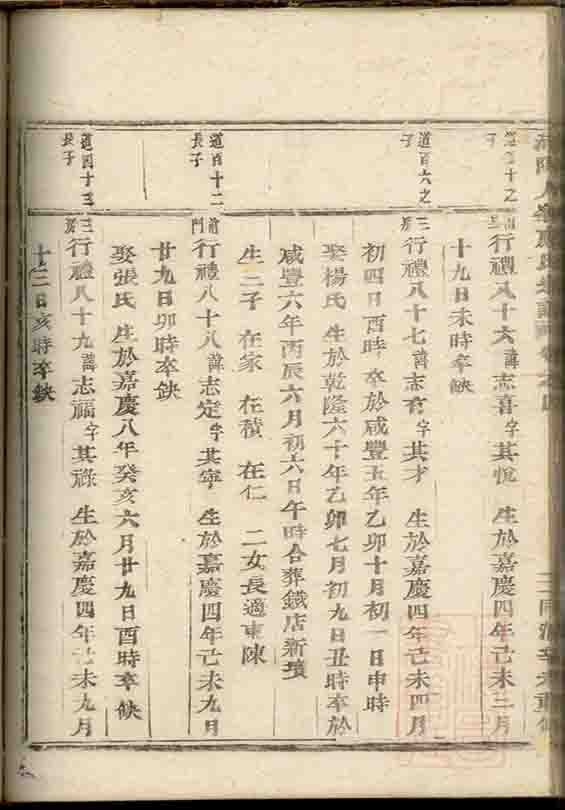 行禮八十六諱志喜字其悅 生於嘉慶四年己未三月
十九日未時卒缺
道百六之
子
三
房
行禮八十七諱志有字其才 生於嘉慶四年己未四月
初四日酉時 卒於咸豐五年乙卯十月初一日申時
娶楊氏 生於乾隆六十年乙卯七月初九日丑時卒於
咸豐六年丙辰六月初六日午時合葬鐵店新墳
生三子 在家 在積 在仁 二女長適東陳
道百十二
長子
前
門
行禮八十八諱志定字其寧 生於嘉慶四年己未九月
廿九日卯時卒缺
娶張氏 生於嘉慶八年癸亥六月廿九日酉時卒缺
道四十三
長子
三
房
行禮八十九諱志福字其祿 生於嘉慶四年己未九月
十三日亥時卒缺